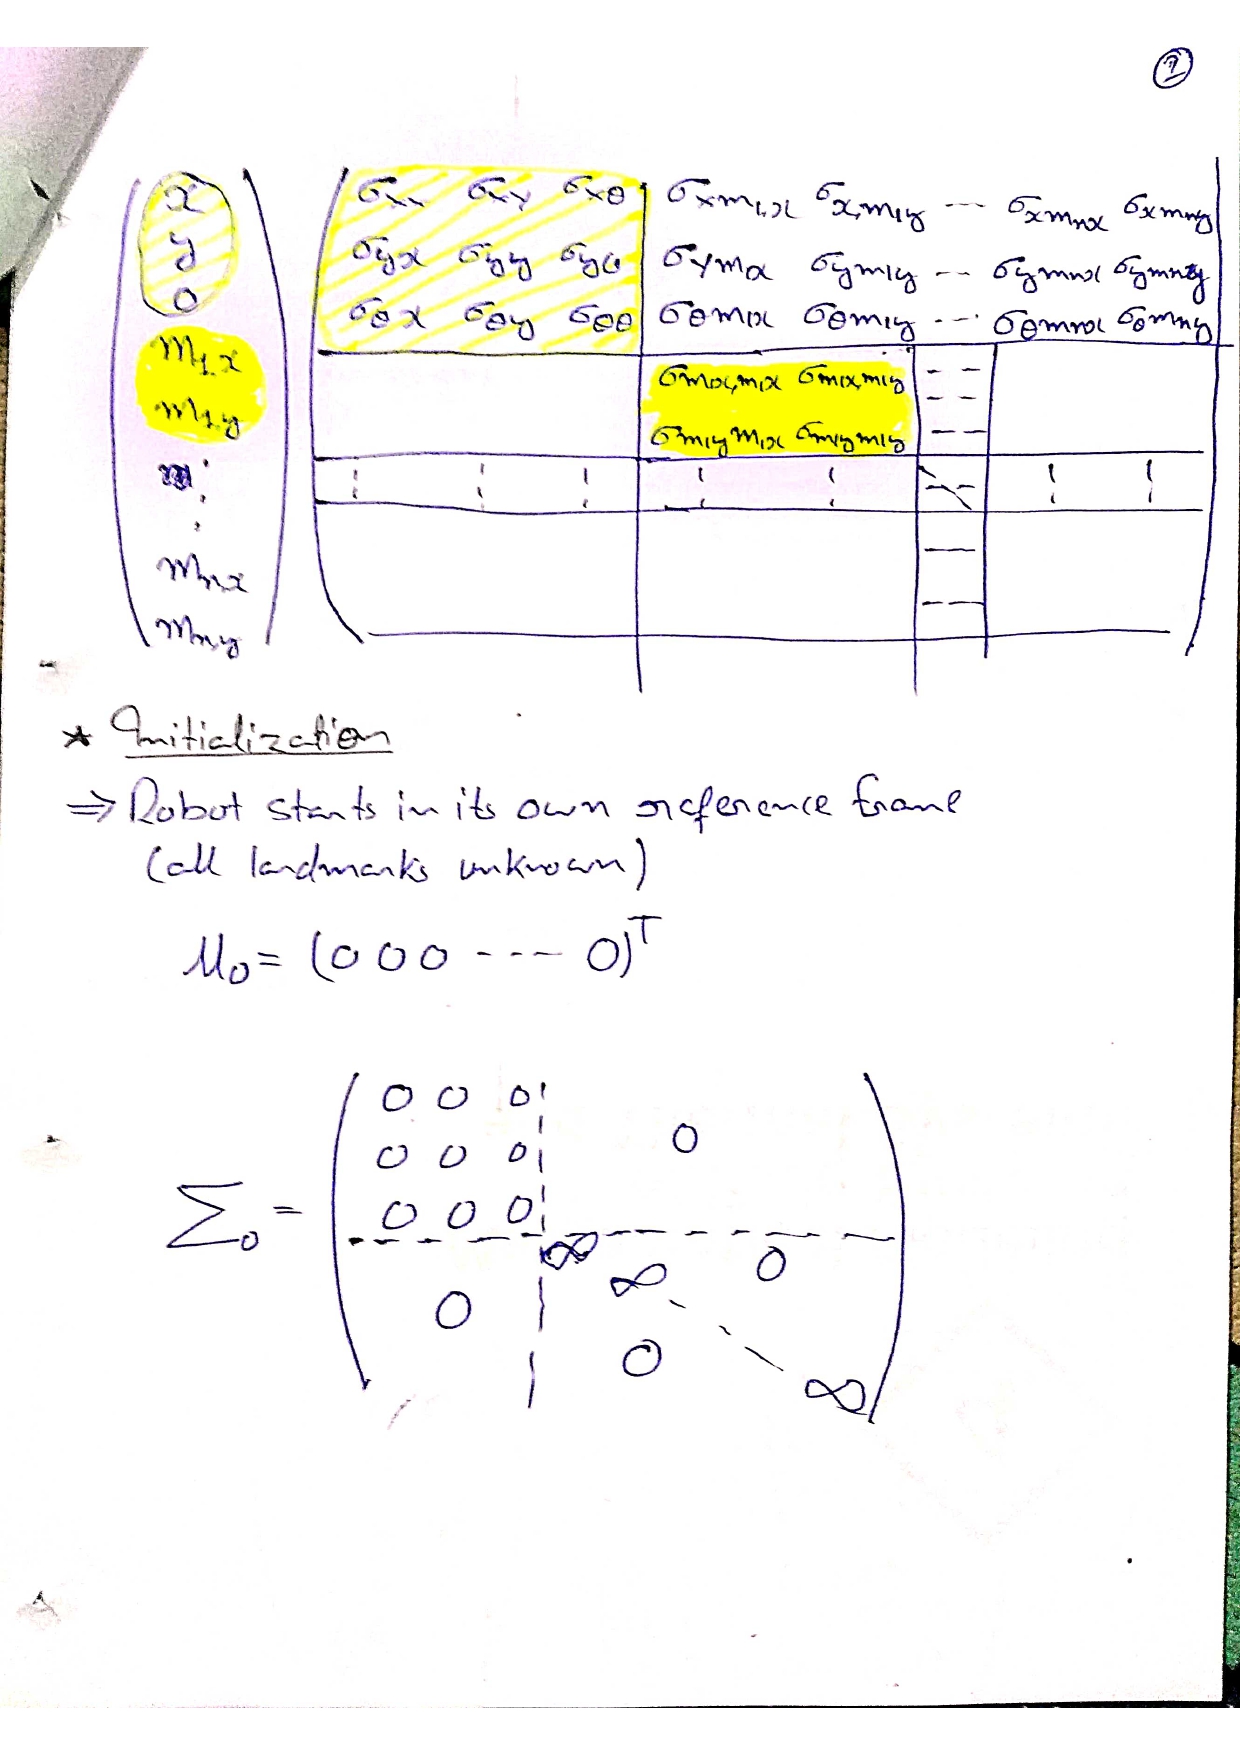 2
x σxx σxy σxθ σxm1,x σx,m1y --- σxmnx σxmny
y σyx σyy σyθ σym1x σym1y -- σymnx σymny
θ σθx σθy σθθ σθm1x σθm1y --- σθmnx σθmny
m1x σm1x,m1x σm1x,m1y
m1y σm1ym1x σm1ym1y
mnx
mny
* Initialization
⇒ Robot starts in its own reference frame
(all landmarks unknown)
μ0 = (0 0 0 ---- 0)^T
0 0 0
0 0 0 0
Σ0 = 0 0 0
∞
∞ 0
0
0
∞